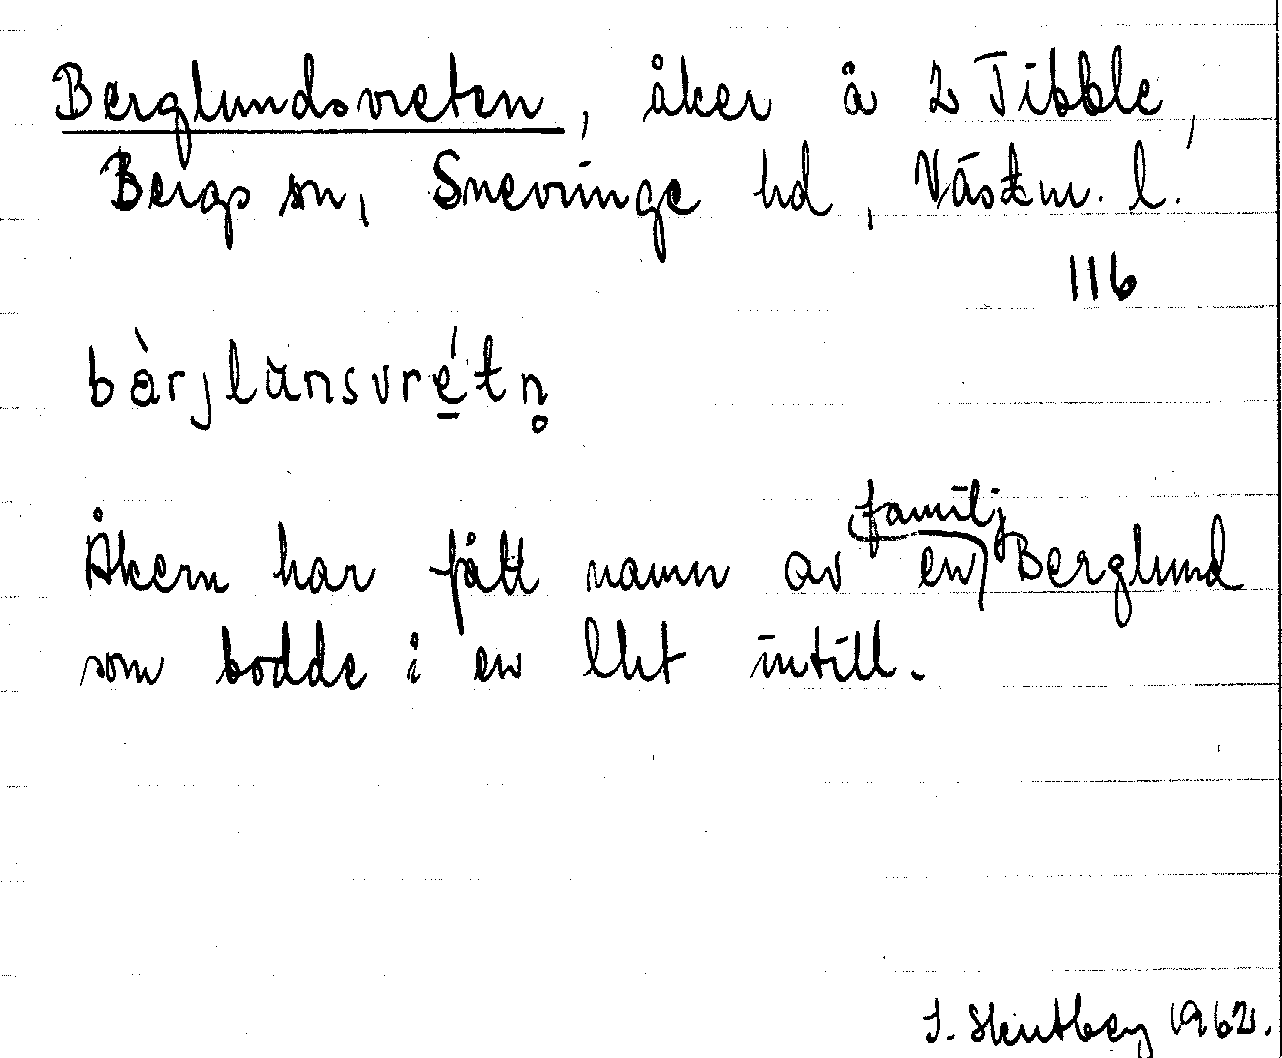 Berglundsvreten, åker å 2 Tibble,
Bergs sn, Snevringe hd, Västm. l.
116
bàrjlùnsvrétn̥
Åkern har fått namn av en familj Berglund
som bodde i en lht intill.
1962.